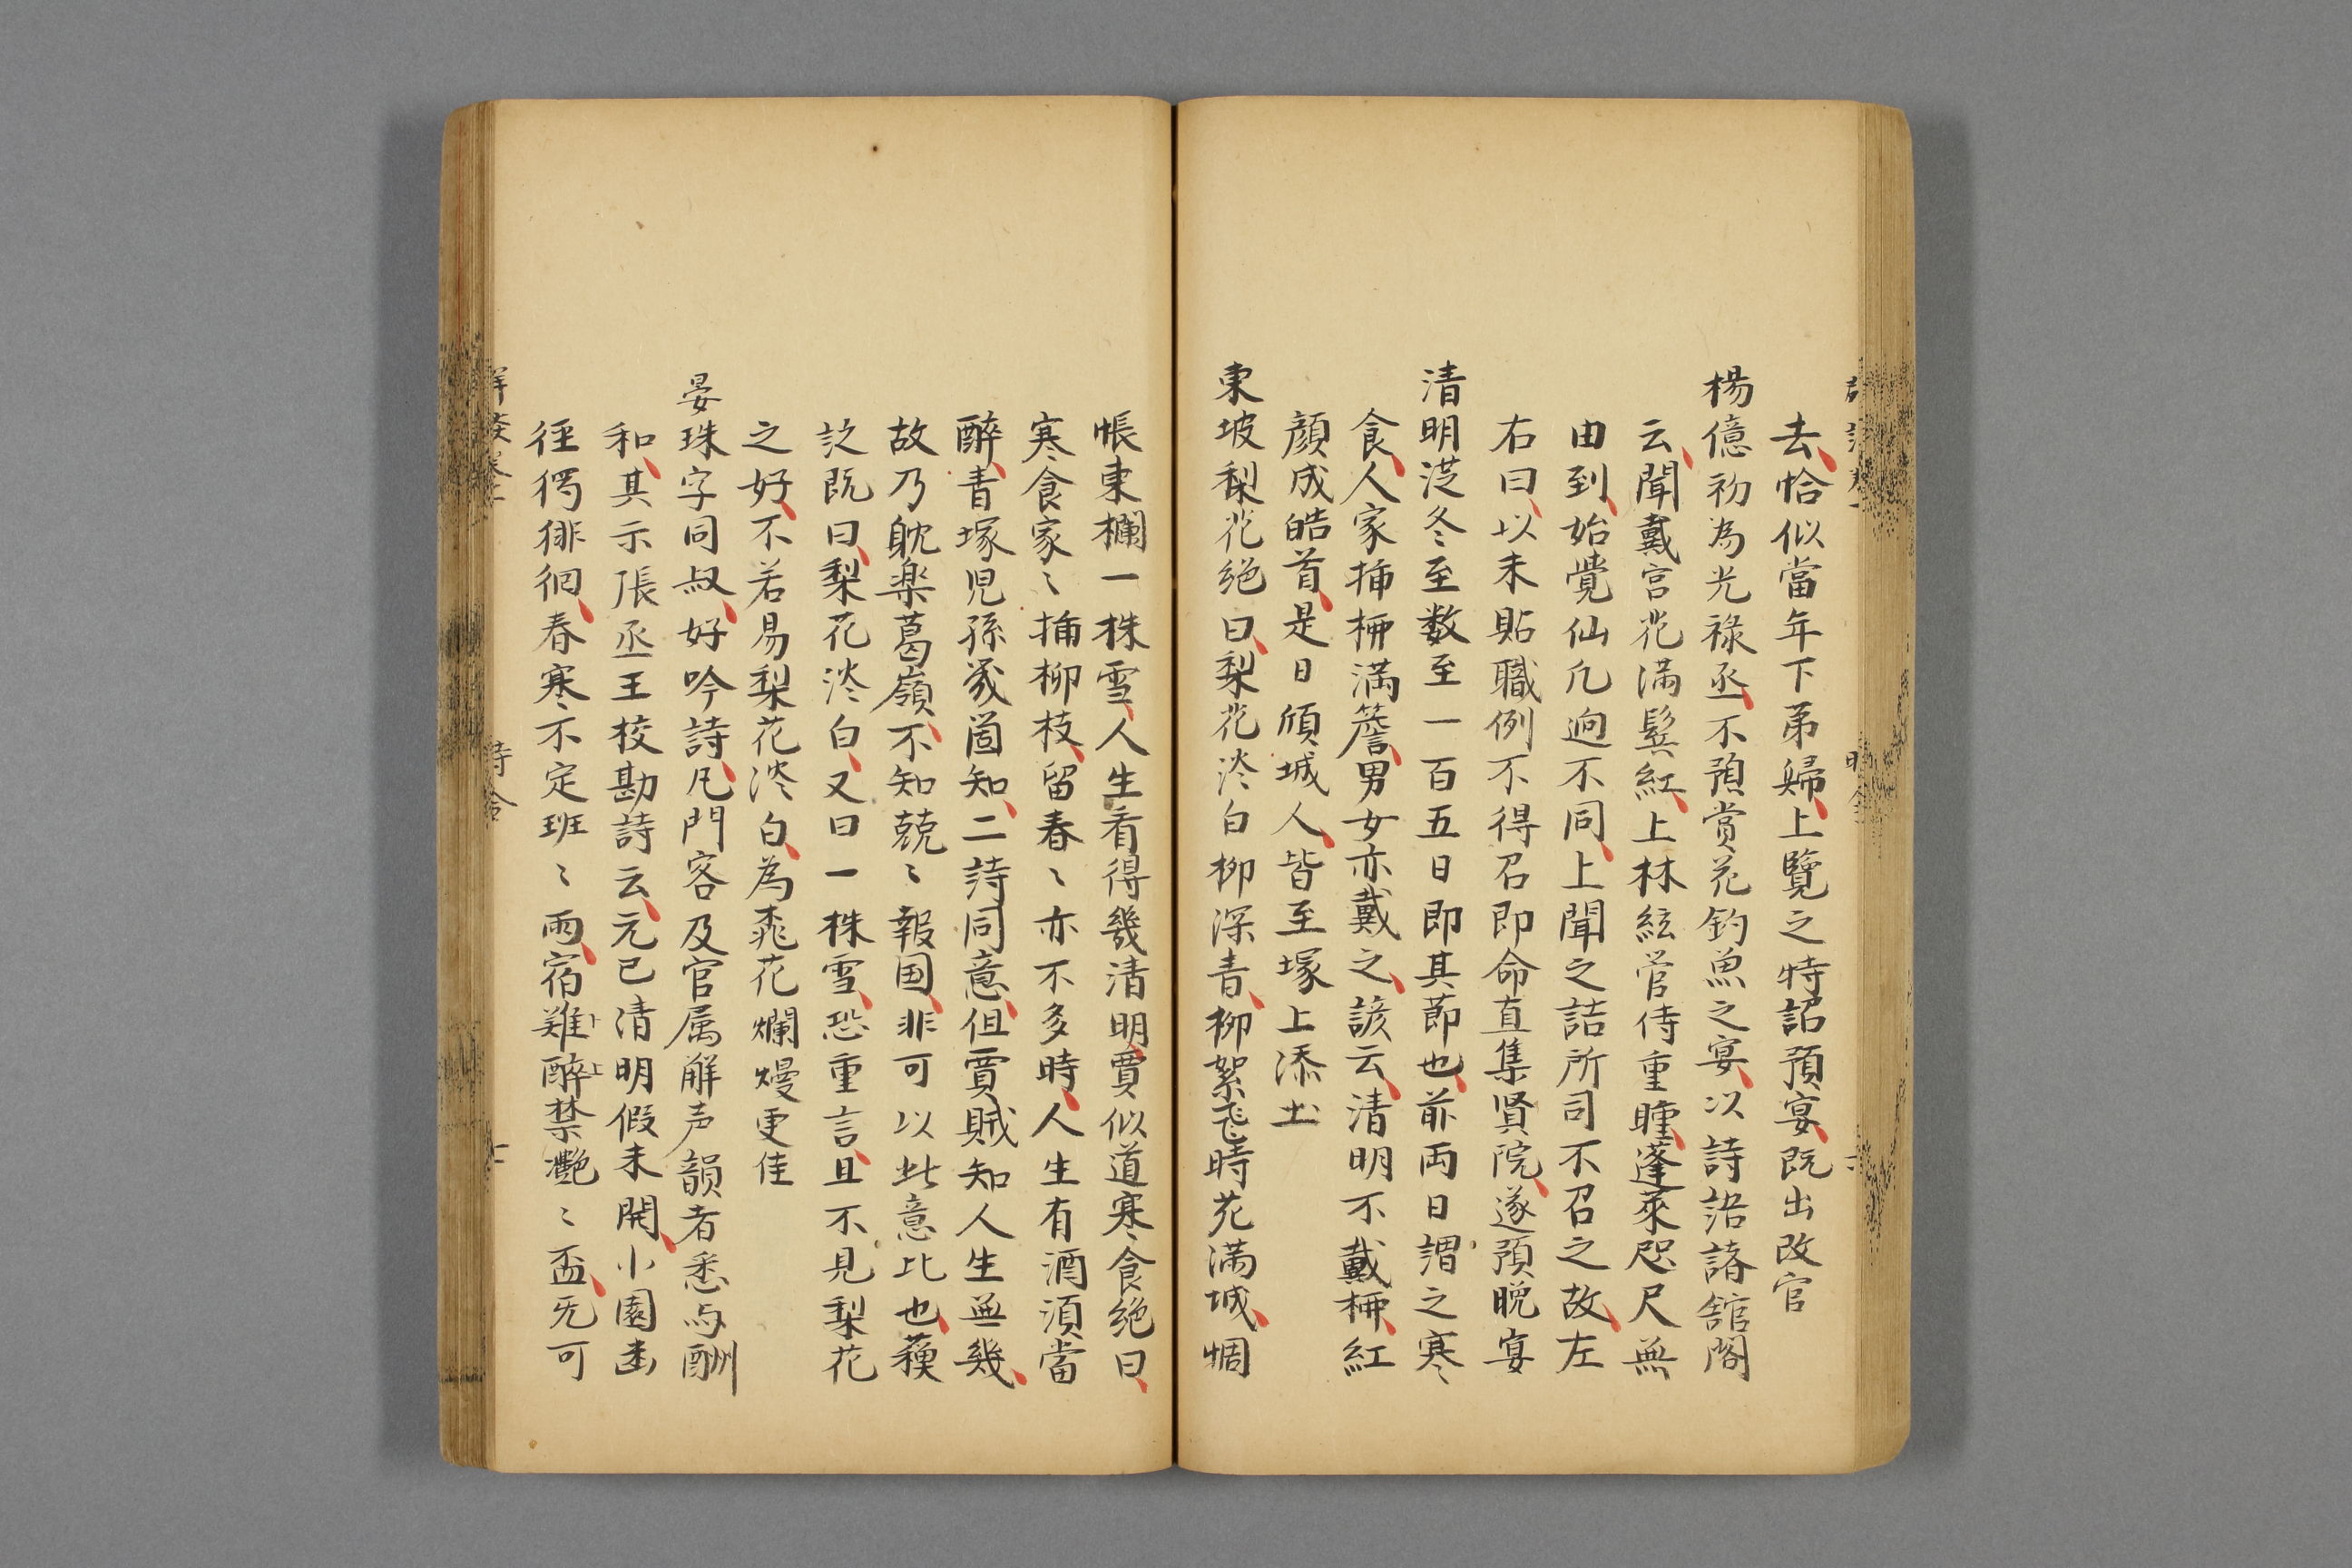 去恰似當年下苐㱕上覽之特詔預宴既出改官
楊億初為光祿丞不預賞花釣魚之宴以詩詒諸舘閣
云聞戴宫花滿鬂紅上林絃管侍重瞳蓬萊咫尺無
由到始覺仙凢逈不同上聞之詰所司不召之故左
右曰以未貼職例不得召即命直集賢院遂預晚宴
清明従冬至数至一百五日即其莭也前両日謂之寒
食人家挿栁満簷男女亦戴之諺云清明不戴栁紅
顔成皓首是日傾城人皆至塚上添土
東坡梨花絶曰梨花淡白柳深青柳絮飛時花満城惆
帳東欄一株雪人生看得幾清明賈似道寒食絶曰
寒食家〻挿柳枝留春〻亦不多時人生有酒湏當
醉青塚児孫幾箇知二詩同意但賈賊知人生無幾
故乃躭楽葛嶺不知兢〻報国非可以此意比也蘓
詩既曰梨花淡白又曰一株雪恐重言且不見梨花
之好不若易梨花淡白為桃花爛熳更佳
晏珠字同叔好吟詩凡門客及官属解声韻者悉与酬
和其示張丞王校勘詩云元已清明假未開小園幽
徑獨徘徊春寒不定班〻雨宿難醉禁灧〻盃旡可